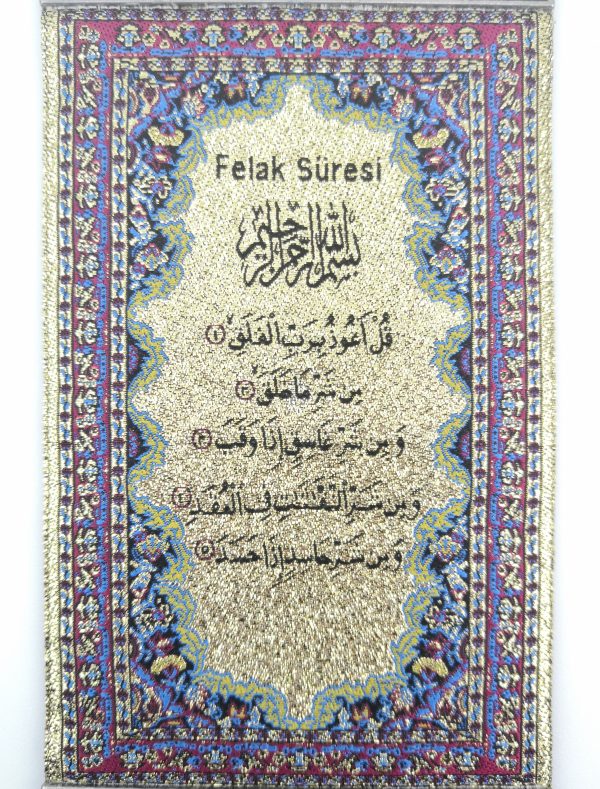 Felak Sûresi
بسم الله الرحمن الرحيم
قُلْ اَعُوذُ بِرَبِّ الْفَلَقِۙ ١
مِنْ شَرِّ مَا خَلَقَۙ ٢
وَ مِنْ شَرِّ غَاسِقٍ اِذَا وَقَبَۙ ٣
وَ مِنْ شَرِّ النَّفَّاثَاتِ فِي الْعُقَدِۙ ٤
وَ مِنْ شَرِّ حَاسِدٍ اِذَا حَسَدَ ٥